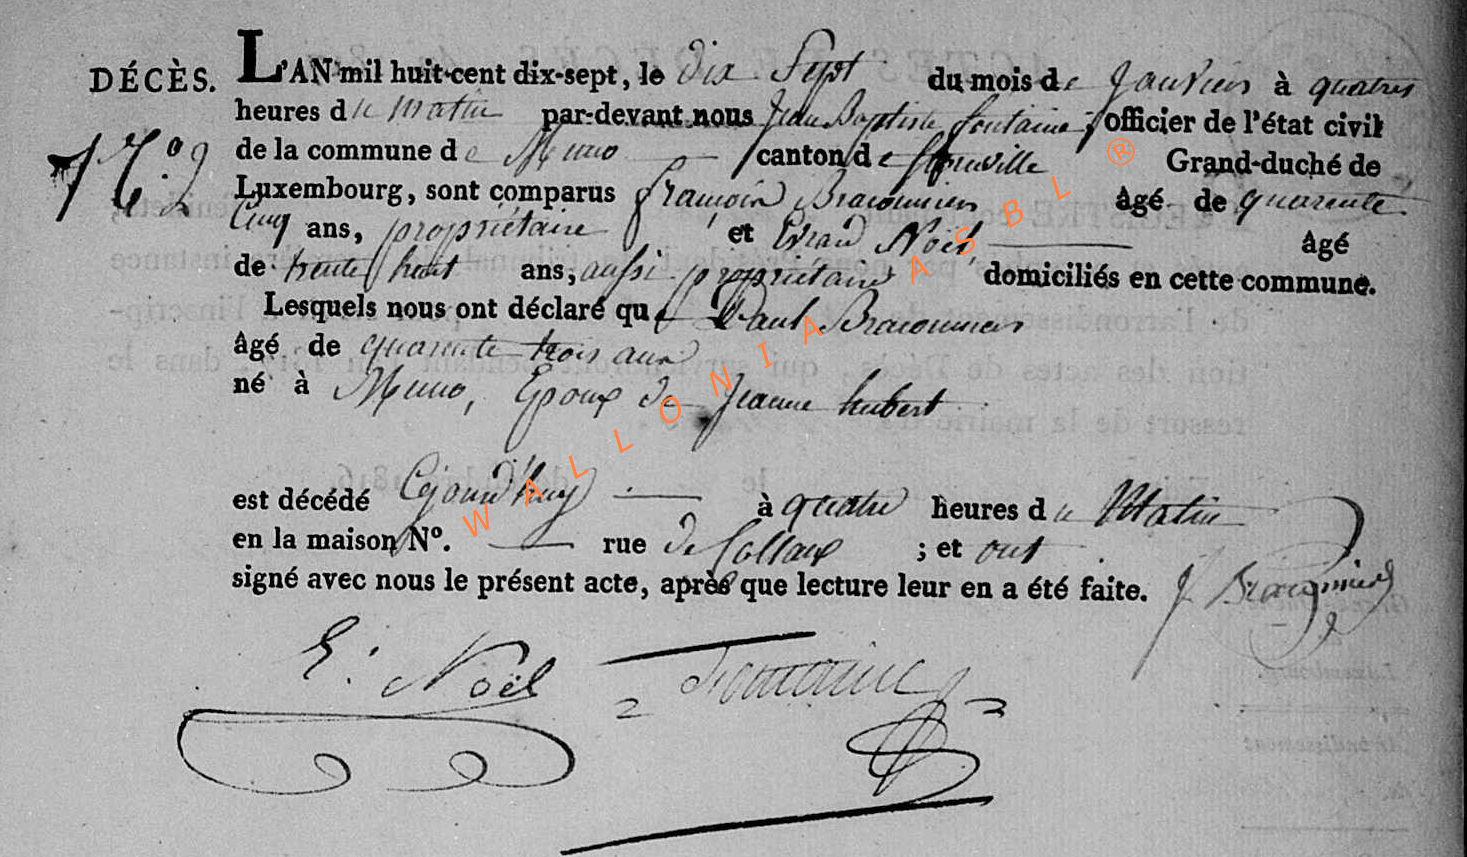 DÉCÈS. L'AN mil huit-cent dix-sept, le dix Sept du mois de Janvier à quatres
heures du matin par-devant nous Jean Baptiste fontaine, officier de l'état civil
N.º 2 de la commune de Muno canton de florenville Grand-duché de
Luxembourg, sont comparus françois Braconnier âgé de quarente
Cinq ans, propriétaire et Evrard Noël, âgé
de trente huit ans, aussi propriétaire domiciliés en cette commune.
Lesquels nous ont déclaré que Paul Braconnier
âgé de quarente trois ans
né à Muno, Epoux de Jeanne hubert
est décédé Cejourd'huy à quatre heures du Matin
en la maison Nº. rue de ; et ont
signé avec nous le présent acte, après que lecture leur en a été faite. f Braconnier
E. Noël fontaine
WALLONIA ASBL ®